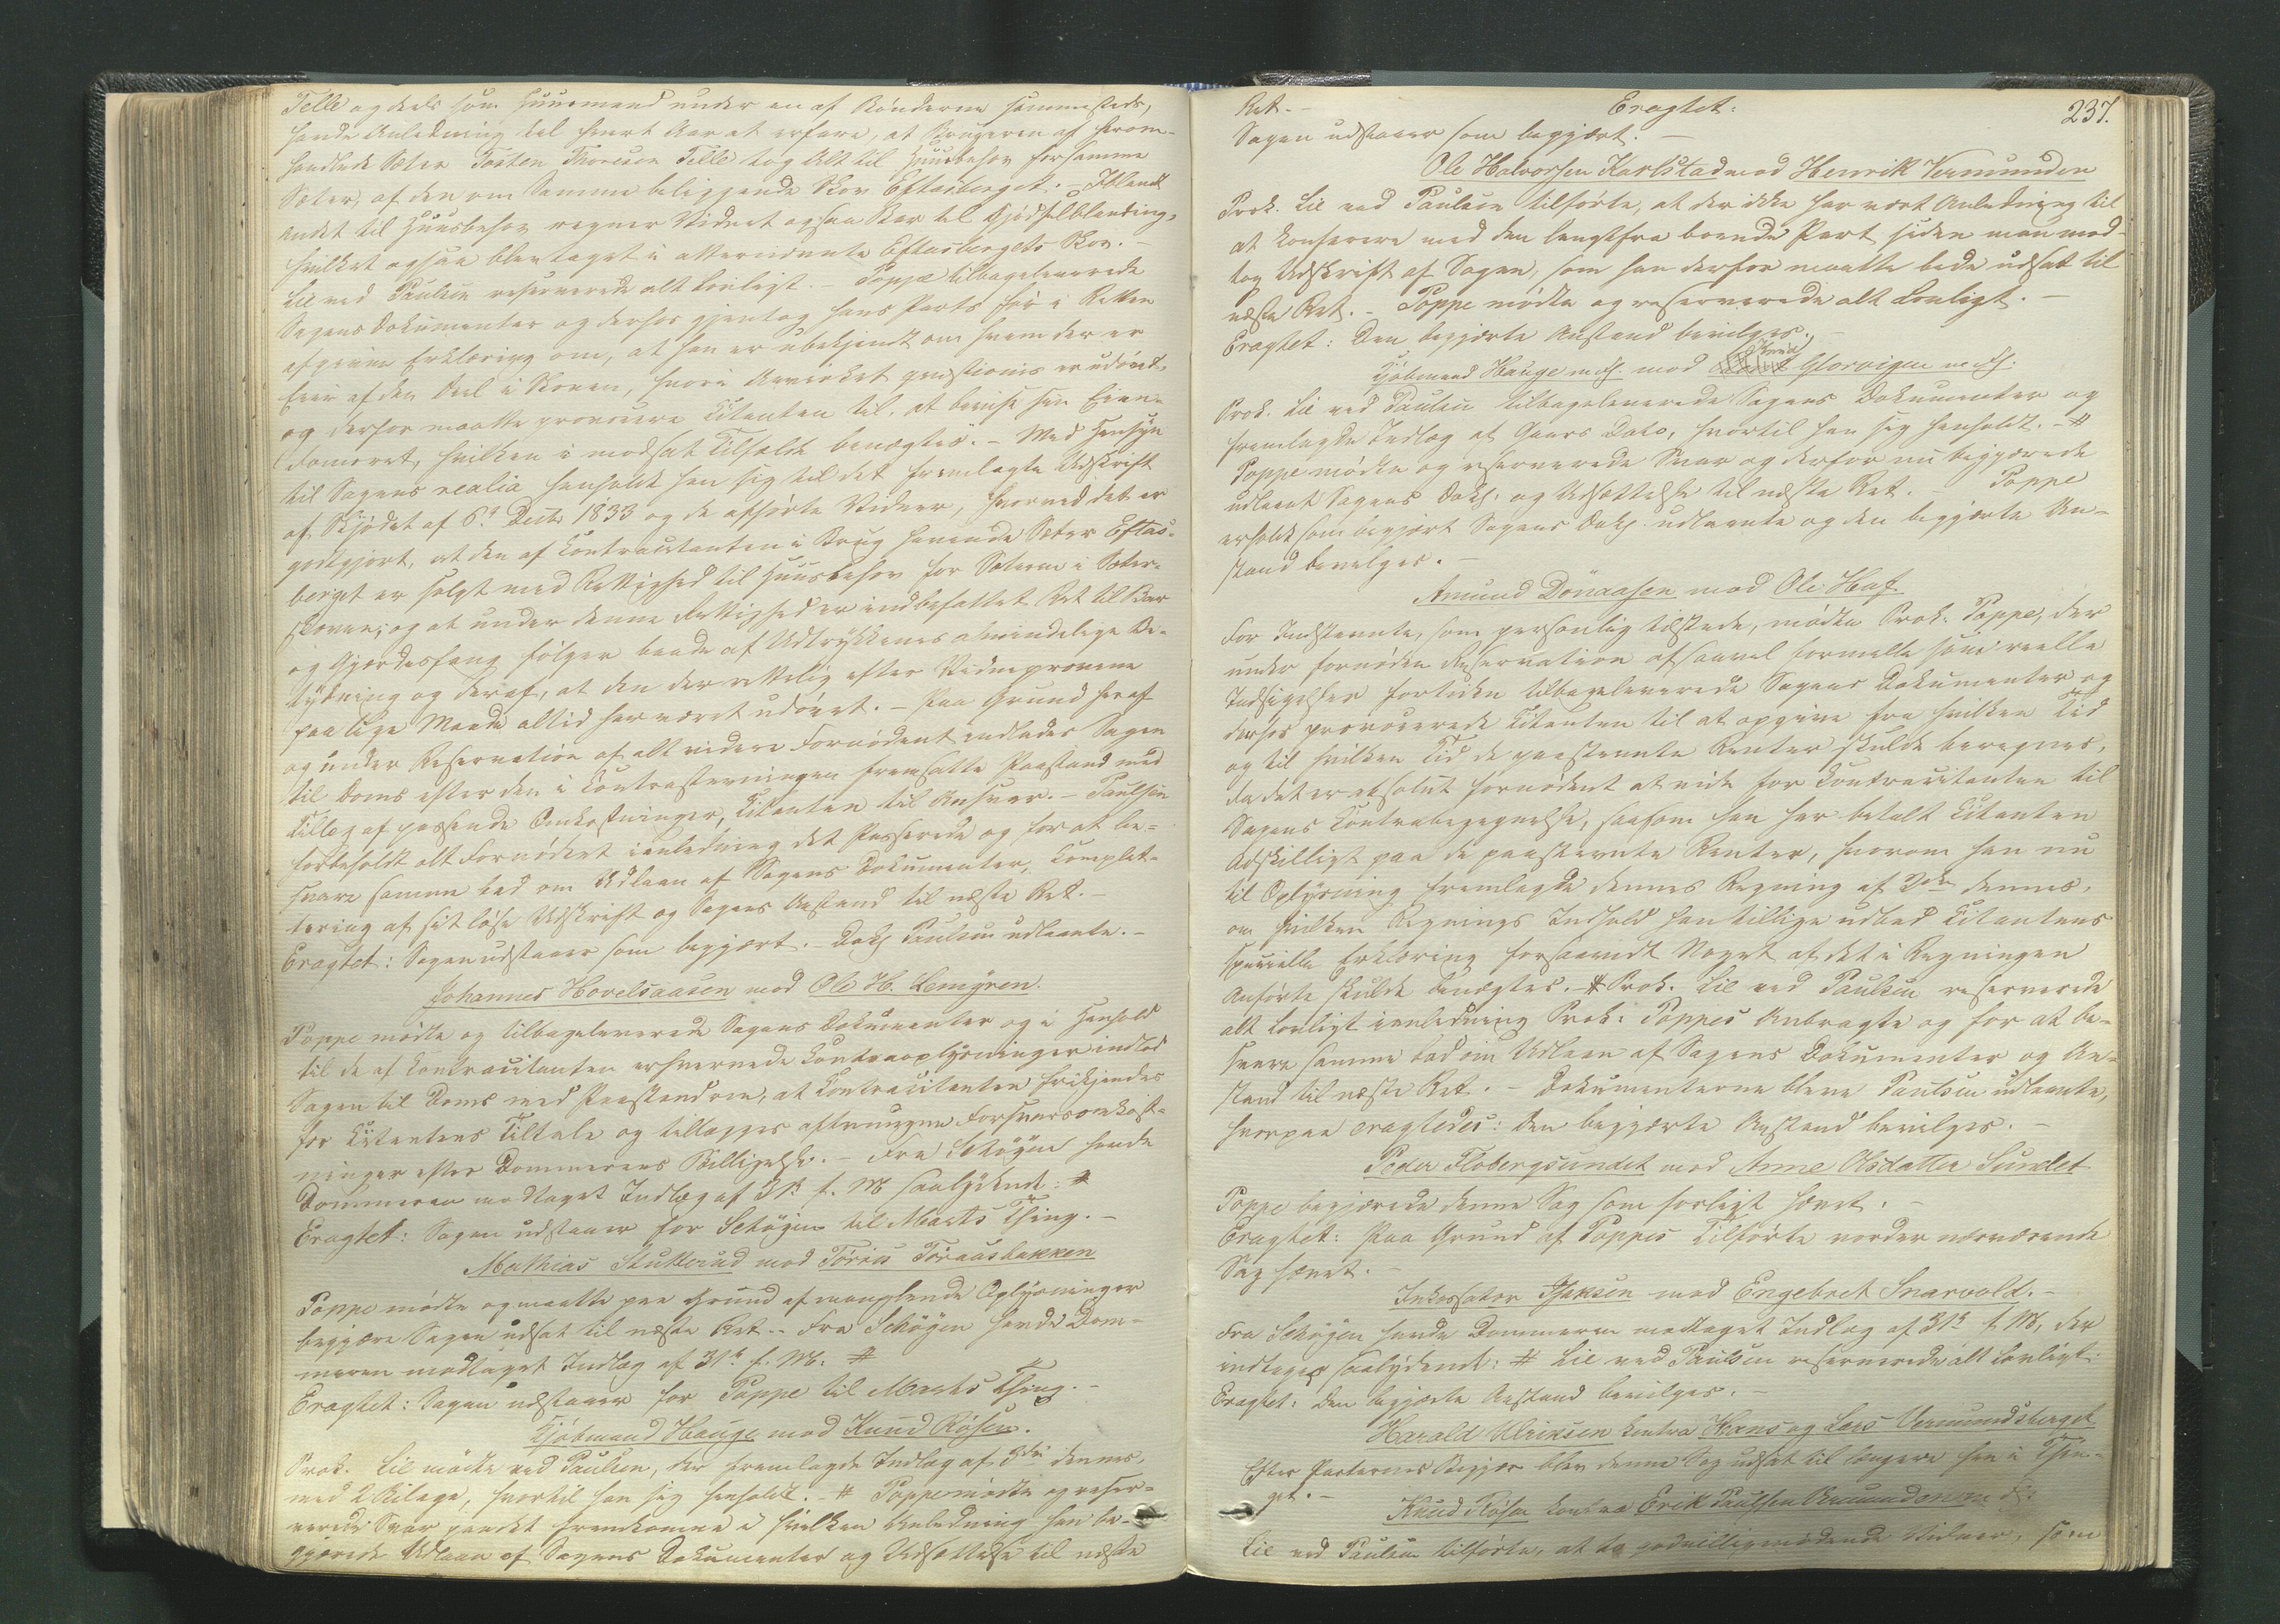 Telle og deels som Huusmand under en af Bønderne sammesteds,
havde Anledning til hvert Aar at erfare, at Brugeren af herom-
handlede Sæter Torsten Thoresen Telle tog Alt til Huusbehov for samme
Sæter, af den om Samme beliggende Skov Eftasberget. Iblandt
andet til Huusbehov regner Vidnet ogsaa Bar til Gjødselblanding,
hvilket ogsaa blev taget i ommeldte Eftasbergets Skov. –
Lie ved Paulsen reserverede alt Lovligt. – Poppe tilbageleverede
Sagens Dokumenter og derhos gjentog hans Parts før i Retten
afgivne Erklæring om, at han er ubekjendt om hvem der er
Eier af den Deel i Skoven, hvori Avirket qvæstionis er udøvet,
og derfor maatte provocere Citanten til at bevise sin Eien-
domsret, hvilken i modsat Tilfælde benægtes. – Med Hensyn
til Sagens realia henholdt han sig til det fremlagte Udskrift
af Skjødet af 6te Decbr 1833 og de afhørte Vidner, hvorved det er
godtgjort, at den af Contracitanten i Brug havende Sæter Eftas-
berget er solgt med Rettighed til Huusbehov for Sæteren i Sæter-
skoven; og at under denne Rettighed er indbefattet Ret til Bar
og Gjærdesfang følger baade af Udtrykkenes almindelige Be-
tydning og deraf, at den der rettelig efter Vidneprovene
paa lige Maade altid har været udøvet. – Paa Grund heraf
og under Reservation af alt videre Fornødent indlades Sagen
til Doms efter den i Contrastevningen fremsatte Paastand med
Tillæg af passende Omkostninger, Citanten til Ansvar. – Paulsen
forbeholdt alt Fornødent i Anledning det Passerede og for at be-
svare samme bad om Udlaan af Sagens Dokumenter, Complet-
tering af sit løse Udskrift og Sagens Anstand til næste Ret. –
Eragtet: Sagen udstaaer som begjært. – Doks Paulsen udlaante. –
Johannes Hovelsaasen mod Ole H. Lemyren.
Poppe mødte og tilbageleverede Sagens Dokumenter og i Henhold
til de af Contracitanten erhvervede Contraoplysninger indlod
Sagen til Doms med Paastand om, at Contracitanten frikjendes
for Citantens Tiltale og tillægges aftvungne Forsvarsomkost-
ninger efter Dommerens Billigelse. – Fra Schøyen havde
Dommeren modtaget Indlæg af 31te f. M. saalydende: #
Eragtet: Sagen udstaaer for Schøyen til Marts Thing. –
Mathias Stutterud mod Tørris Töraasbakken
Poppe mødte og maatte paa Grund af manglende Oplysninger
begjære Sagen udsat til næste Ret. – Fra Schøyen havde Dom-
meren modtaget Indlæg af 31te f. M. #
Eragtet: Sagen udstaaer for Poppe til Marts Thing. –
Kjøbmand Hauge mod Knud Røsen.
Prok. Lie mødte ved Paulsen, der fremlagde Indlæg af 3die dennes,
med 2 Bilage, hvortil han sig henholdt. – # Poppe mødte og reser-
verede Svar paa det Fremkomne i hvilken Anledning han be-
gjærede Udlaan af Sagens Dokumenter og Udsættelse til næste
Ret. – Eragtet: 237.
Sagen udstaaer som begjært. –
Ole Halvorsen Karlstad mod Henrik Vermunden
Prok. Lie ved Paulsen tilførte, at der ikke har vært Anledning til
at konferere med den langtfra boende Part siden man mod-
tog Udskrift af Sagen, som han derfor maatte bede udsat til
næste Ret. – Poppe mødte og reserverede alt Lovligt. –
Eragtet: Den begjærte Anstand bevilges. –
Kjøbmand Hauge m. fl. mod Glorvigen m. fl.
Prok. Lie ved Paulsen tilbageleverede Sagens Dokumenter og
fremlagde Indlæg af Gaars Dato, hvortil han sig henholdt. – #
Poppe mødte og reserverede Svar og derfor nu begjærede
udlaant Sagens Doks. og Udsættelse til næste Ret. – Poppe
erholdt som begjært Sagens Doks. udlaante og den begjærte An-
stand bevilges. –
Amund Dönaasen mod Ole Haf.
For Indstevnte, som personlig tilstede, mødte Prok. Poppe, der
under fornøden Reservation af saavel formelle som reelle
Indsigelser fortiden tilbageleverede Sagens Dokumenter og
derhos provocerede Citanten til at opgive fra hvilken Tid
og til hvilken Tid de paastevnte Renter skulde beregnes,
da det er absolut fornødent at vide for Contracitanten til
Sagens Contrabegegnelse, saasom han har betalt Citanten
Adskilligt paa de paastevnte Renter, hvorom han nu
til Oplysning fremlagde dennes Regning af 2den dennes,
om hvilken Regnings Indhold han tillige udbad Citantens
specielle Erklæring forsaavidt Noget af det i Regningen
Anførte skulde benægtes. – # Prok. Lie ved Paulsen reserverede
alt Lovligt i Anledning Prok. Poppes Anbragte og for at be-
svare samme bad om Udlaan af Sagens Dokumenter og An-
stand til næste Ret. – Dokumenterne bleve Paulsen udlaante,
hvorpaa eragtedes: Den begjærte Anstand bevilges. –
Peder Flobergsundet mod Anne Olsdatter Sundet
Poppe begjærede denne Sag som forligt hævet. –
Eragtet: Paa Grund af Poppes Tilførte vorder nærværende
Sag hævet. –
Inkassator Isaksen mod Engebret Snarvold. –
Fra Schøyen havde Dommeren modtaget Indlæg af 31te f. M, der
indtages saalydende: # Lie ved Paulsen reserverede alt Lovligt.
Eragtet: Den begjærte Anstand bevilges. –
Harald Ulriksen contra Hans og Lars Vermundsberget
Efter Parternes Begjær blev denne Sag udsat til længere hen i Thin-
get. –
Knud Røsen contra Erik Paulsen
Lie ved Paulsen tilførte, at to godvilligmødende Vidner, som